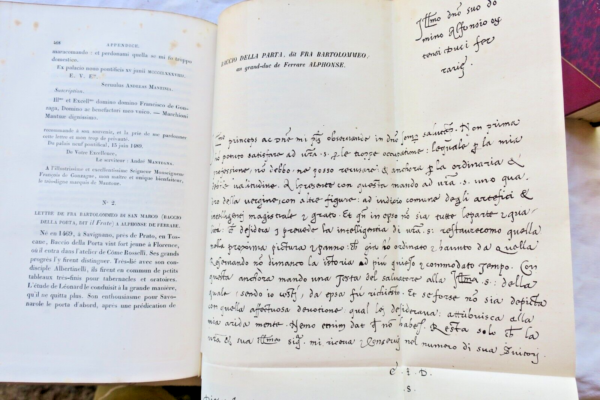 60 APPENDICE.
raccomando : et perdonami quella se mi fo troppo
domestico.
Ex palacio nostri pontificis
E. V. Exc.
Servulus ANDREAS MANTINIA.
Inscription.
Illmo et Excellmo domino domino Francisco de Gon-
zaga, Domino ac benefactori unico. — Marchioni
Mantue dignissimo.
recommande à son souvenir, et la prie de me pardonner
cette lettre si mon trop de privauté.
Du palais neuf pontifical, 15 juin 1489.
De Votre Excellence,
Le serviteur : André MANTEGNA.
A l'illustrissime et excellentissime Seigneur Monseigneur
François de Gonzague, mon maître et unique bienfaiteur,
le très-digne marquis de Mantoue.
N° 2.
LETTRE DE FRA BARTOLOMMEO DI SAN MARCO (BACCIO
DELLA PORTA, DIT il Frate) A ALPHONSE DE FERRARE.
Né en 1469, à Savignano, près de Prato, en Tos-
cane, Baccio della Porta vint fort jeune à Florence,
où il entra dans l'atelier de Côme Roselli. Ses grands
progrès l'y firent distinguer. Très-lié avec son con-
disciple Albertinelli, ils firent en commun de petits
tableaux très-finis pour tabernacles et oratoires.
L'étude de Léonard le conduisit à la grande manière,
qu'il ne quitta plus. Son enthousiasme pour Savo-
narole le porta d'abord, après une prédication de
BACCIO DELLA PORTA, dit FRA BARTOLOMMEO,
au grand-duc de Ferrare ALPHONSE.
Illmo dno suo do
mino Alfonsio
Duci fer
rarie
princeps ac dne mi obser in dno salutem. Non prima
ho potuto satisfare ad vra .s. p le troppe occupatione: lequale p la mia
professione, no debbo, ne posso recusare: & anchora p la ordinaria &
valitudine. & lo presente con questa mando ad vra .s. uno qua
dro della vergine, con altre figure: ad iudicio comune degli artefici &
intelligenti magistrale & grato. Et in opra no sia tutte le parte
desidera & prevede la intelligentia di vra .s. restaureremo quella
nella proxima pictura & panno: gia ho ordinato & havuto da quella
no dimanco la istoria ad piu quieto & commodato tempo. Con
questa anchora mando una Testa del salvatore alla Illma .s.: della
quale, da epsa fui richiesto. Et se forse no sia depicta
con quella affectuosa devotione qual lei desiderava: attribuisca alla
mia arida mente. Nemo etenim dat no habet. Resta solo la
vra & sua Illma sig. mi riceva & conservi nel numero di sua Servitori.